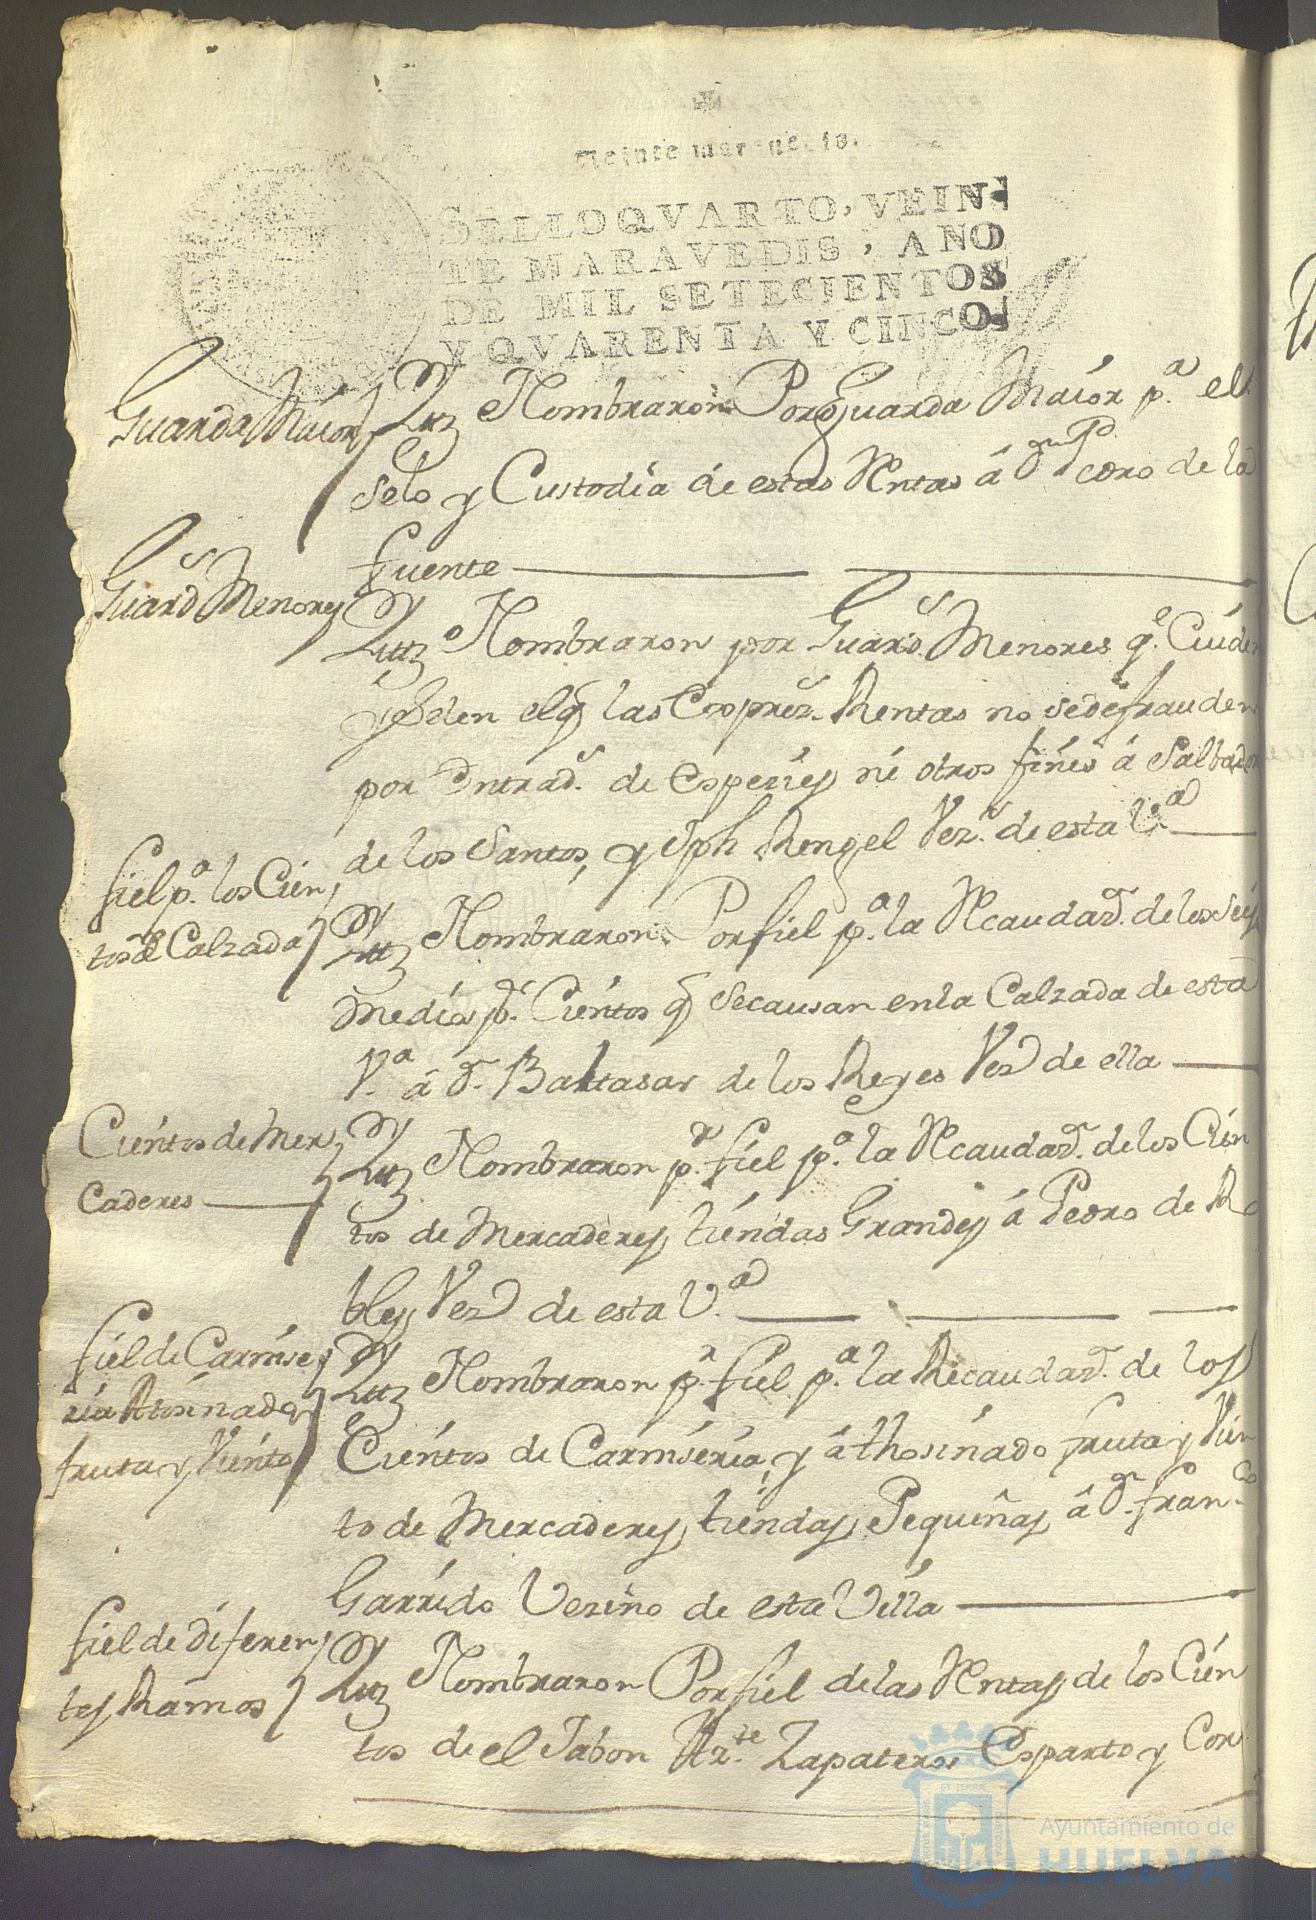 Veinte maravedis.
SELLO QVARTO, VEIN-
TE MARAVEDIS, AÑO
DE MIL SETECIENTOS
Y QVARENTA Y CINCO.
Guarda Maior
Nombraron Por Guarda Maior p.ª el
Selo y Custodia de estas Rentas á Dn Pedro de la
fuente
Guards Menores
Nombraron por Guards. Menores q.e Cuiden
y Selen el q las Expres.s Rentas no se defrauden
por Entrads. de Especies ni otros fines á Salbador
de los Santos, y Jph Rengel Vez.s de esta V.ª
fiel p.ª los Cien
tos de Calzada
Nombraron Por fiel p.ª la Recaudaon. de los Seis
Medios p.r Cientos q Se causan en la Calzada de esta
V.ª á Dn. Baltasar de los Reyes Vez.o de ella
Cientos de Mer
caderes
Nombraron p.r fiel p.ª la Recaudaon. de los Cien
tos de Mercaderes tiendas Grandes á Pedro de Ro
bles Vez.o de esta V.ª
fiel de Carnise
ria Atosinado
fruta y Viento
Nombraron p.r fiel p.ª la Recaudaon. de los
Cientos de Carniseria, y áthosinado fruta y Vien
to de Mercaderes, tiendas Pequeñas á Dn. fran.co
Garrido Vezino de esta Villa
fiel de Diferen
tes Ramos
Nombraron Por fiel de las Rentas de los Cien
tos de el Jabon Az.te Zapateros Esparto y Cor
Ayuntamiento de
HUELVA